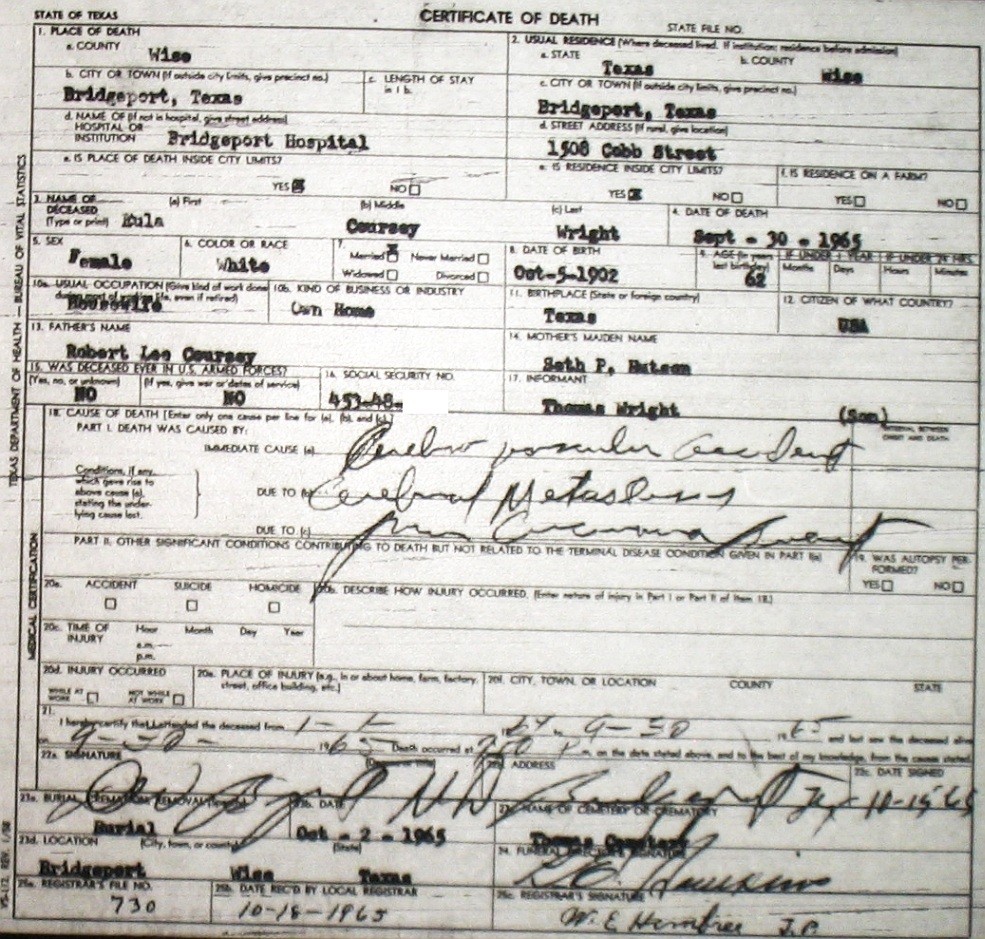 STATE OF TEXAS
CERTIFICATE OF DEATH
STATE FILE NO.
1. PLACE OF DEATH
a. COUNTY
Wise
2. USUAL RESIDENCE (Where deceased lived. If institution: residence before admission)
a. STATE
Texas
b. COUNTY
Wise
b. CITY OR TOWN (If outside city limits, give precinct no.)
Bridgeport, Texas
c. LENGTH OF STAY in 1 b.
c. CITY OR TOWN (If outside city limits, give precinct no.)
Bridgeport, Texas
d. NAME OF (If not in hospital, give street address)
HOSPITAL OR
INSTITUTION Bridgeport Hospital
d. STREET ADDRESS (If rural, give location)
1508 Cobb Street
e. IS PLACE OF DEATH INSIDE CITY LIMITS?
YES NO
e. IS RESIDENCE INSIDE CITY LIMITS?
YES NO
f. IS RESIDENCE ON A FARM?
YES NO
3. NAME OF DECEASED
(Type or print)
(a) First
Eula
(b) Middle
Coursey
(c) Last
Wright
4. DATE OF DEATH
Sept - 30 - 1965
5. SEX
Female
6. COLOR OR RACE
White
7.
Married Never Married
Widowed Divorced
8. DATE OF BIRTH
Oct-5-1902
9. AGE (In years last birthday)
62
IF UNDER 1 YEAR
Months Days
IF UNDER 24 HRS.
Hours Minutes
10a. USUAL OCCUPATION (Give kind of work done
even if retired)
Housewife
10b. KIND OF BUSINESS OR INDUSTRY
Own Home
11. BIRTHPLACE (State or foreign country)
Texas
12. CITIZEN OF WHAT COUNTRY?
USA
13. FATHER'S NAME
Robert Lee Coursey
14. MOTHER'S MAIDEN NAME
Seth P. Hutson
15. WAS DECEASED EVER IN U.S. ARMED FORCES?
(Yes, no, or unknown)
NO
(If yes, give war or dates of service)
NO
16. SOCIAL SECURITY NO.
453-48-
17. INFORMANT
Thomas Wright (Son)
18. CAUSE OF DEATH [Enter only one cause per line for (a), (b), and (c).]
INTERVAL BETWEEN
ONSET AND DEATH
PART I. DEATH WAS CAUSED BY:
IMMEDIATE CAUSE (a) Cerebro vascular accident
Conditions, if any, which gave rise to above cause (a), stating the underlying cause last.
DUE TO (b) Cerebral Metastasis
DUE TO (c) Carcinoma
PART II. OTHER SIGNIFICANT CONDITIONS CONTRIBUTING TO DEATH BUT NOT RELATED TO THE TERMINAL DISEASE CONDITION GIVEN IN PART I(a)
19. WAS AUTOPSY PERFORMED?
YES NO
20a. ACCIDENT SUICIDE HOMICIDE
20b. DESCRIBE HOW INJURY OCCURRED. (Enter nature of injury in Part I or Part II of item 18.)
20c. TIME OF INJURY
Hour Month Day Year
a.m.
p.m.
20d. INJURY OCCURRED
WHILE AT WORK NOT WHILE AT WORK
20e. PLACE OF INJURY (e.g., in or about home, farm, factory, street, office building, etc.)
20f. CITY, TOWN, OR LOCATION COUNTY STATE
21.
I hereby certify that I attended the deceased from 9-30 1965 and last saw the deceased alive
on 9-30- 1965 Death occurred at m., on the date stated above, and to the best of my knowledge, from the causes stated.
22a. SIGNATURE
M D
22b. ADDRESS
Bridgeport Tx
22c. DATE SIGNED
10-15-65
23a. BURIAL, CREMATION, REMOVAL
Burial
23b. DATE
Oct - 2 - 1965
23c. NAME OF CEMETERY OR CREMATORY
Thomas Cemetery
23d. LOCATION (City, town, or county) (State)
Bridgeport Wise Texas
24. FUNERAL DIRECTOR'S SIGNATURE
25a. REGISTRAR'S FILE NO.
730
25b. DATE REC'D BY LOCAL REGISTRAR
10-18-1965
25c. REGISTRAR'S SIGNATURE
W. E. Hembree J.P.
TEXAS DEPARTMENT OF HEALTH — BUREAU OF VITAL STATISTICS
MEDICAL CERTIFICATION
VS-112, REV. 1/58